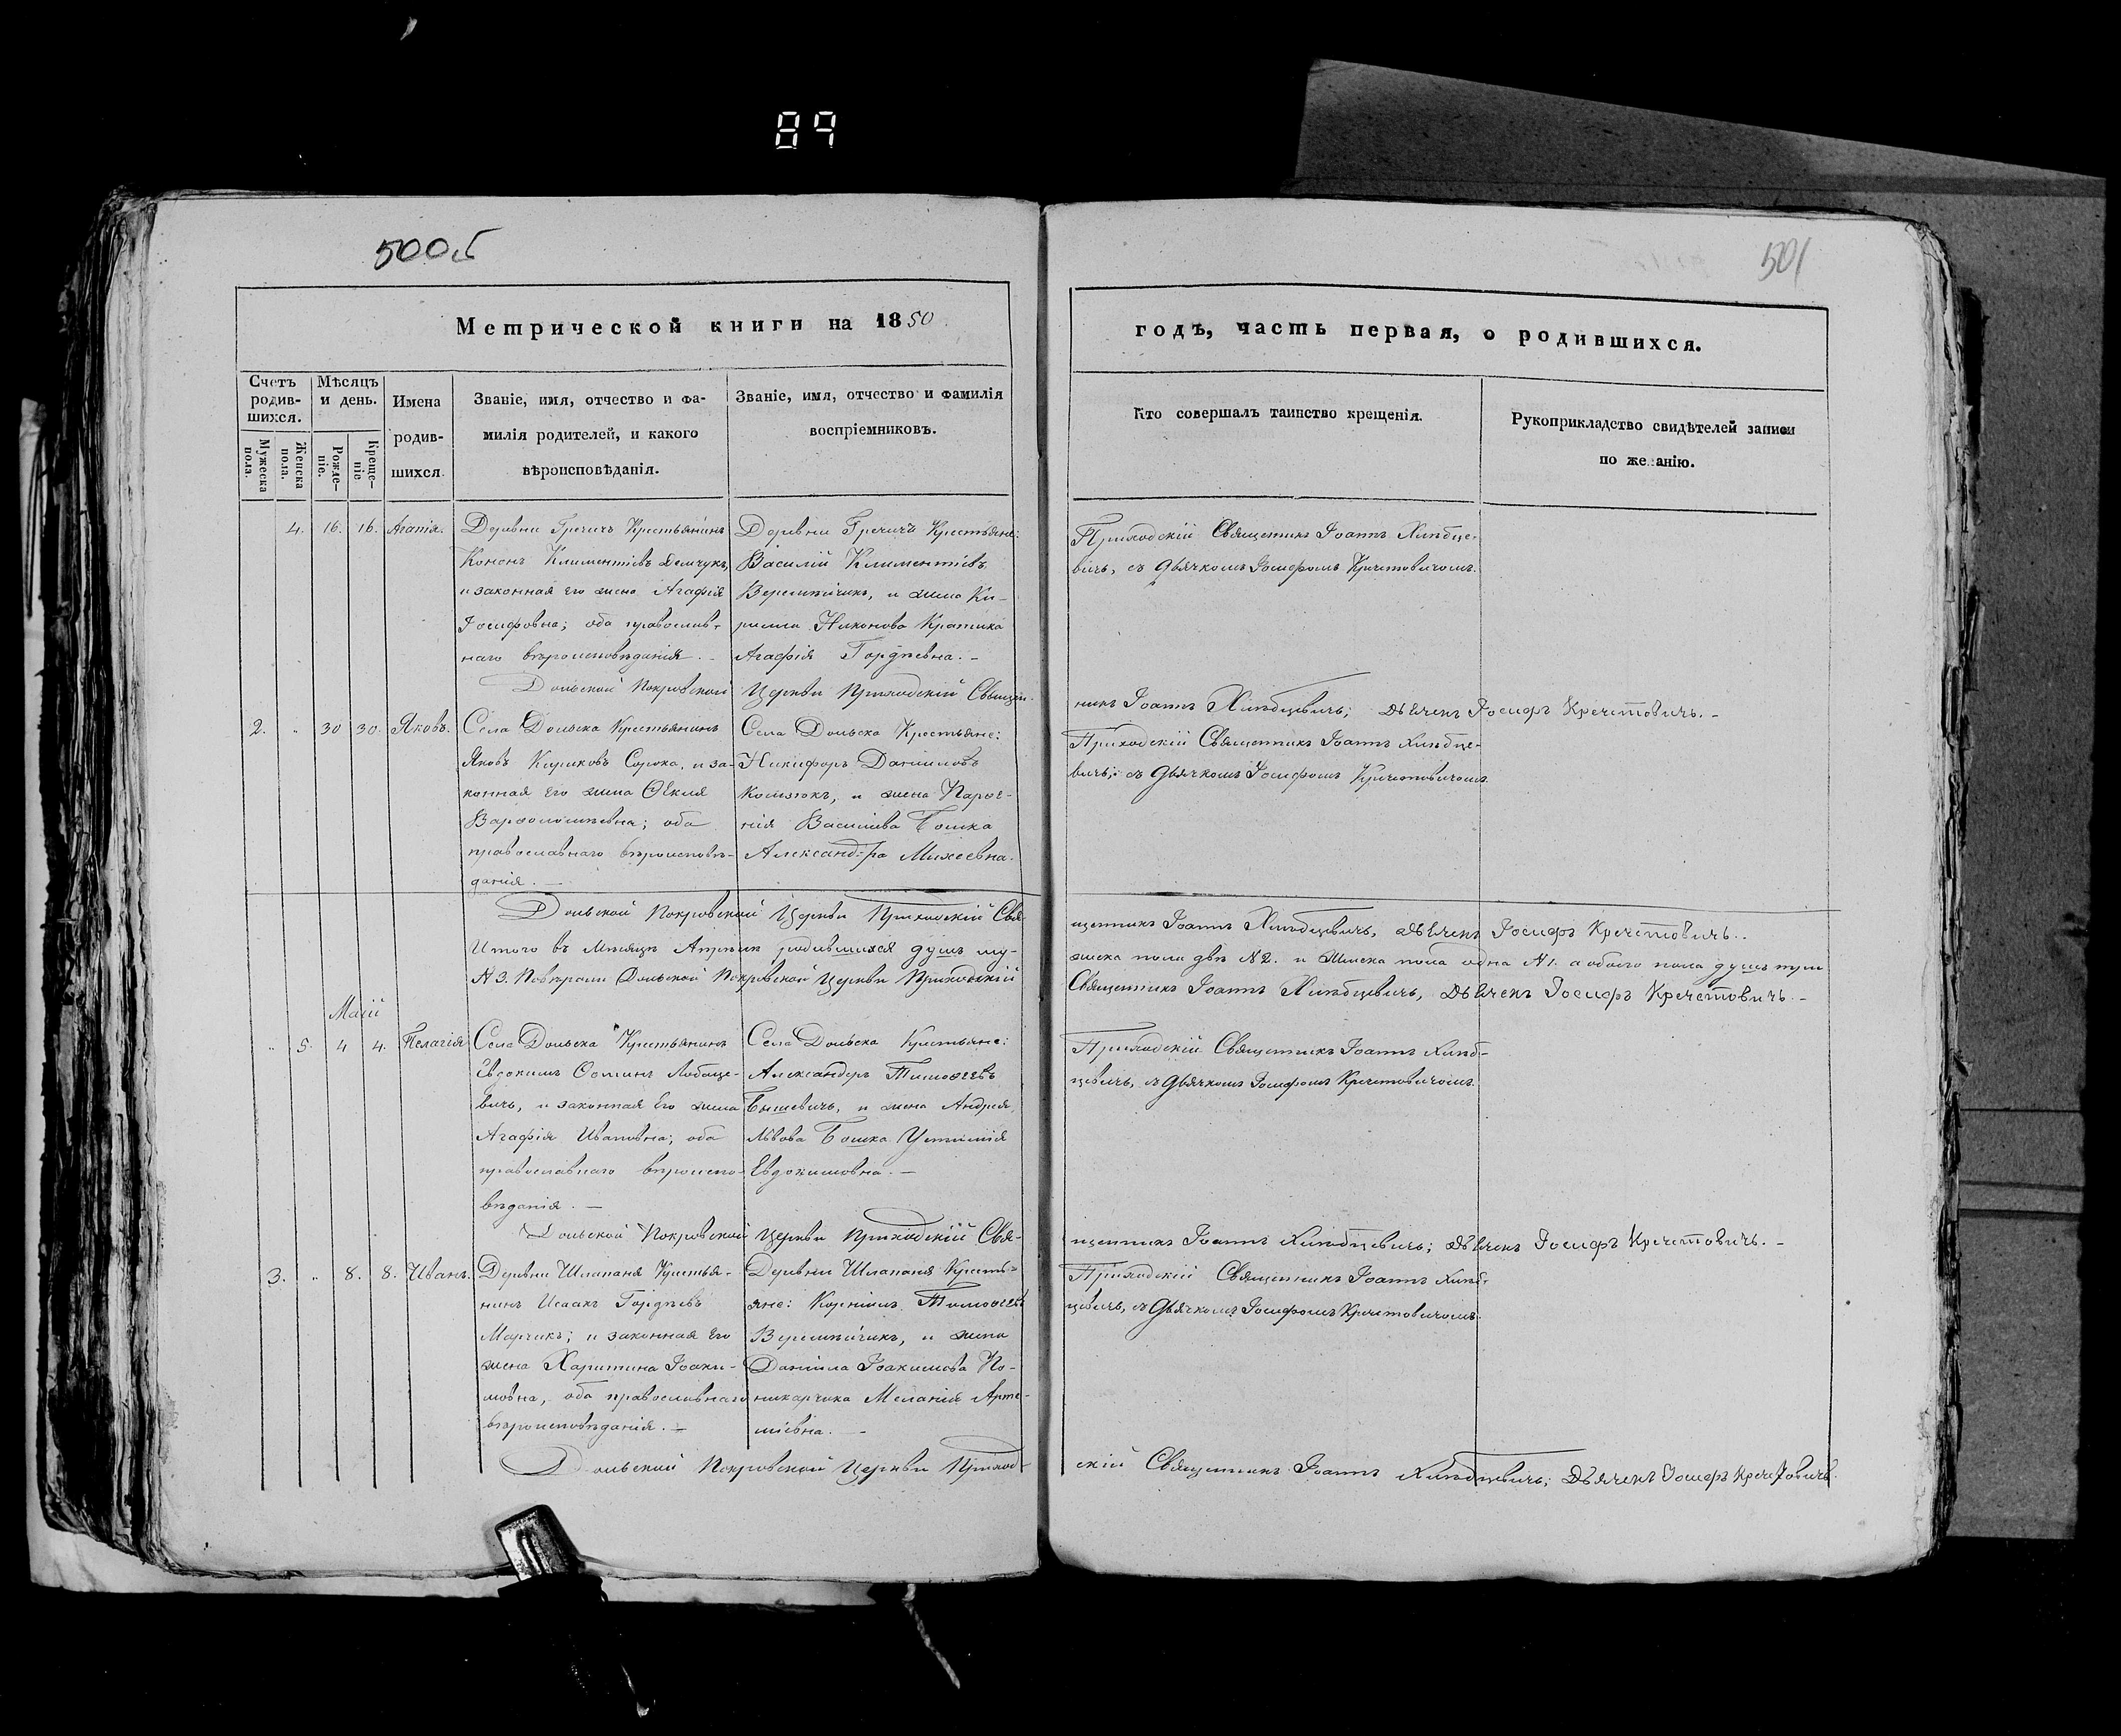 89
500б
501
Метрической книги на 1850
годъ, часть первая, о родившихся.
Счетъ родив-шихся.
Мѣсяцъ и день.
Имена родив-шихся.
Званіе, имя, отчество и фа-
милія родителей, и какого
вѣроисповѣданія.
Званіе, имя, отчество и фамилія
воспріемниковъ.
Кто совершалъ таинство крещенія.
Рукоприкладство свидѣтелей записи
по желанію.
Мужеска пола.
Женска пола.
Рожде-ніе.
Креще-ніе
4. 16. 16. Агапія.
Деревни Гречичъ Крестьянинъ
Кононъ Климентіевъ Демчукъ,
и законная его жена Агафія
Іосифовна; оба православ-
наго вѣроисповѣданія. –
Деревни Гречичъ Крестьяне:
Василій Климентіевъ
Веремейчикъ, и жена Ки-
рилла Никонова Кратика
Агафія Гордѣевна. –
Приходскій Священникъ Іоаннъ Хлѣбце-
вичь, съ дьячкомъ Іосифомъ Кречетовичомъ.
Дольской Покровской Церкви Приходскій Священ-
никъ Іоаннъ Хлѣбцевичь; Дьячекъ Іосифъ Кречетовичъ. –
2. " 30 30. Яковъ.
Села Дольска Крестьянинъ
Яковъ Кириковъ Сорока, и за-
конная его жена Ѳекла
Варѳоломѣевна; оба
православнаго вѣроисповѣ-
данія. –
Села Дольска Крестьяне:
Никифоръ Даниловъ
Колзюкъ, и жена Парѳе-
нія Васильева Бошка
Александра Михеевна.
Приходскій Священникъ Іоаннъ Хлѣбце-
вичь; съ дьячкомъ Іосифомъ Кречетовичомъ.
Дольской Покровской Церкви Приходскій Свя-
щенникъ Іоаннъ Хлѣбцевичь, Дьячекъ Іосифъ Кречетовичь.
Итого въ Мѣсяцѣ Апрѣлѣ родившихся душъ му-
жеска пола двѣ №2. и Женска пола одна №1. а обоего пола душъ три
№3. Повѣряли Дольской Покровской Церкви Приходскій
Священникъ Іоаннъ Хлѣбцевичь, Дьячекъ Іосифъ Кречетовичь. –
Маій
" 5. 4 4. Пелагія
Села Дольска Крестьянинъ
Евдокимъ Ѳоминъ Лобаце-
вичь, и законная его жена
Агафія Ивановна; оба
православнаго вѣроиспо-
вѣданія. –
Села Дольска Крестьяне:
Александръ Тимоѳеевъ
Бышевичь, и жена Андрея
Львова Бошка Устинія
Евдокимовна. –
Приходскій Священникъ Іоаннъ Хлѣб-
цевичь, съ дьячкомъ Іосифомъ Кречетовичомъ.
Дольской Покровской Церкви Приходскій Свя-
щенникъ Іоаннъ Хлѣбцевичь; Дьячекъ Іосифъ Кречетовичь. –
3. " 8. 8. Иванъ.
Деревни Шлапаня Крестья-
нинъ Исаакъ Гордѣевъ
Марчикъ; и законная его
жена Харитина Іоаки-
мовна, оба православнаго
вѣроисповѣданія. –
Деревни Шлапаня Кресть-
яне: Корнилъ Тимоѳеевъ
Веремейчикъ, и жена
Даніила Іоакимова По-
никарчика Меланія Арте-
міевна. –
Приходскій Священникъ Іоаннъ Хлѣб-
цевичь, съ дьячкомъ Іосифомъ Кречетовичомъ.
Дольской Покровской Церкви Приход-
скій Священникъ Іоаннъ Хлѣбцевичь; Дьячекъ Іосифъ Кречетовичь.